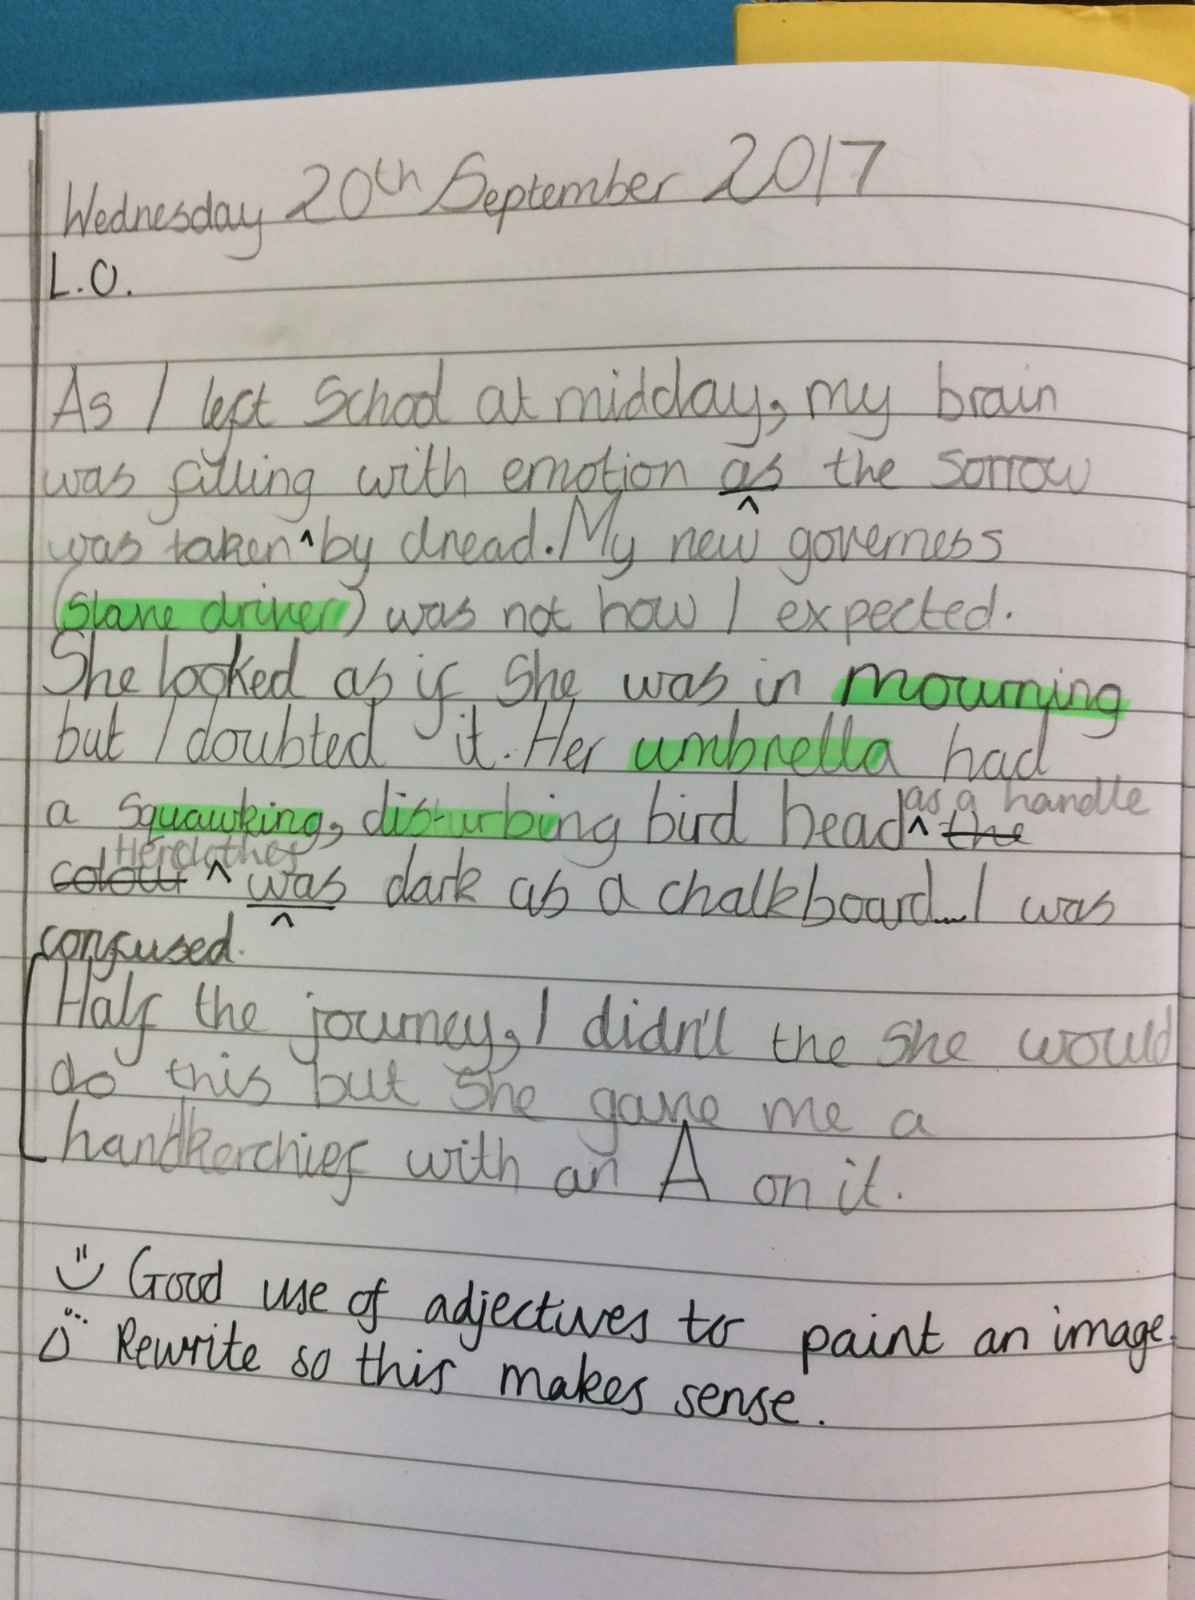 Wednesday 20th September 2017
L.O.
As I left School at midday, my brain
was filling with emotion as the sorrow
was taken ^ by dread. My new governess
(Slave driver) was not how I expected.
She looked as if she was in mourning
but I doubted it. Her umbrella had
as a handle
a squawking, disturbing bird head ^ the
Her clothes
colour ^ was dark as a chalkboard.... I was
confused.
Half the journey, I didn't the she would
do this but she gave me a
handkerchief with an A on it.
Good use of adjectives to paint an image
Rewrite so this makes sense.